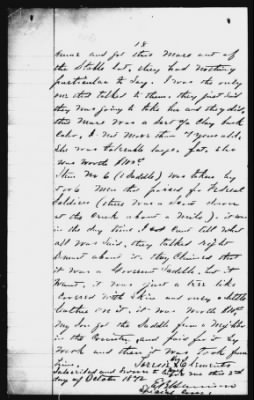 18
and got this mare out of
the Stable lot, they had nothing
particular to say. I was the only
one that talked to them, they just said
they was going to take her and they did,
this mare was a sort of a Clay bank
Color, & not more than 7 years old.
She was tolerable large, fat. She
was worth
Item No 6 (1 Saddle) was taken by
men that passed for Federal
Soldiers (there was a
at the Creek about a mile). it was
in the day time I Cant tell what
all was said, they talked right
about it. they Claimed that
it was a Government Saddle, but it
wasnt, it was just a tree like
Covered with Skin and only a little
leather on it. it was worth
My Son got the Saddle from a Neighbor
in the Country, and paid for it by
work and then it was took from
him.
Clements
Subscribed and Sworn to before me this 2nd
day of October 1872
Special Com.